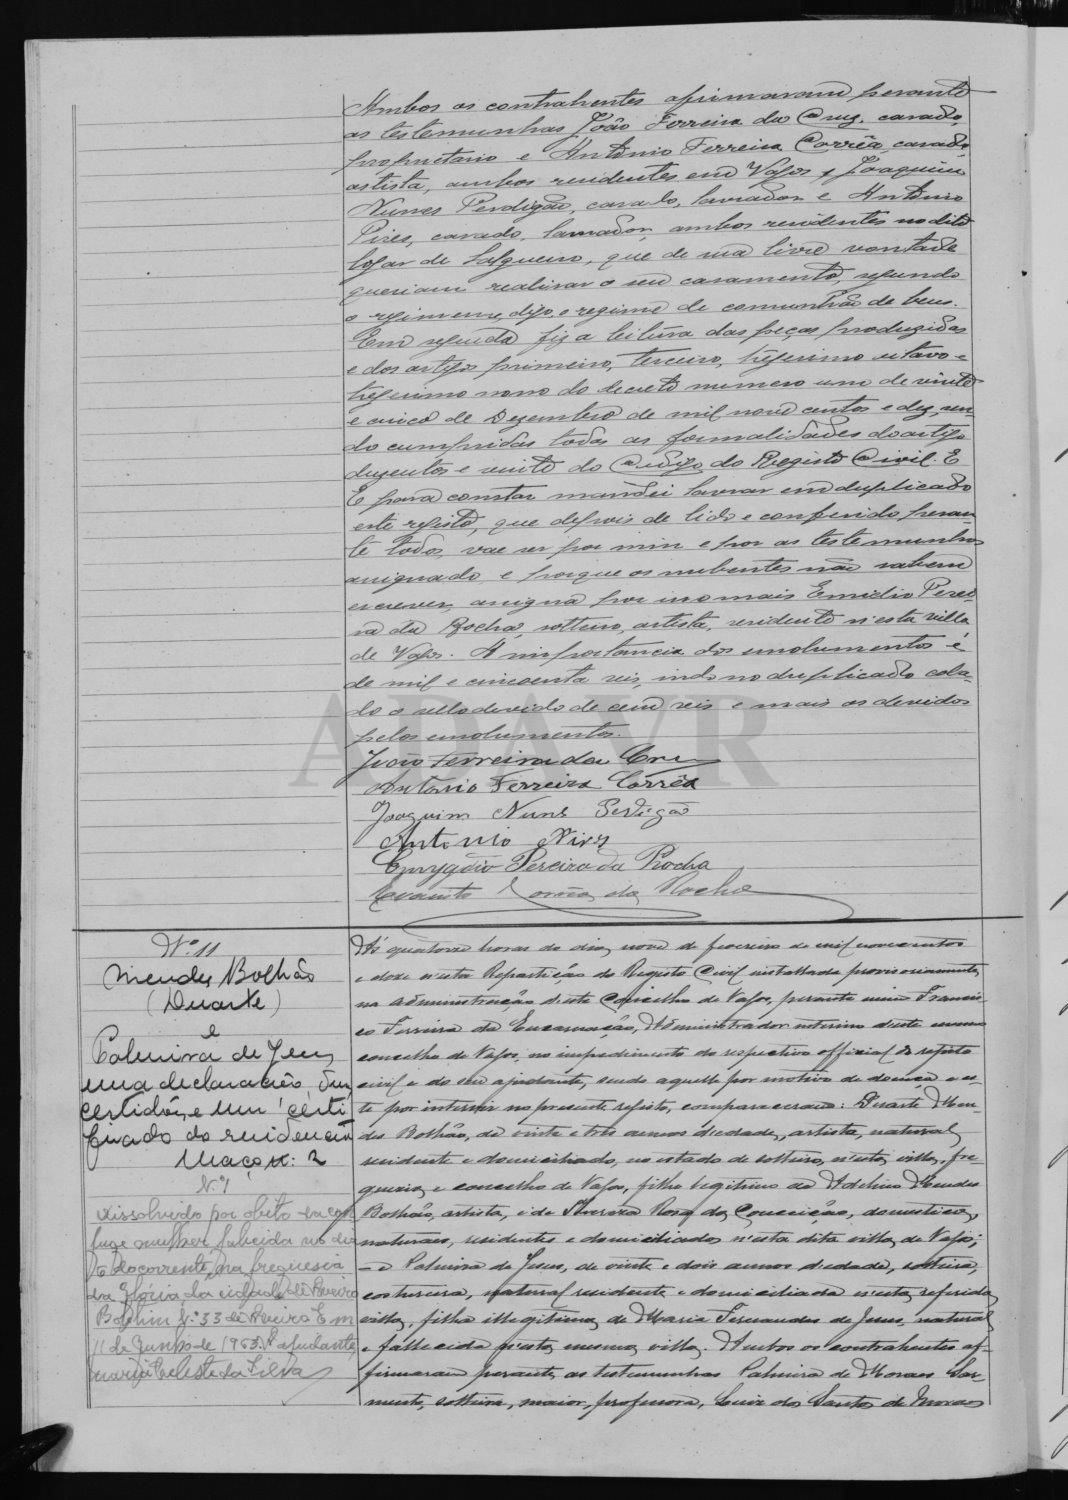 Ambos os contrahentes afirmaram perante
as testemunhas João Ferreira da Cruz, casado,
proprietario e Antonio Ferreira Corrêa casado,
artista, ambos residentes em Vagos, e Joaquim
Nunes Perdigão, casado, lavrador e Antonio
Pires, casado, lavrador, ambos residentes no dito
logar de Salgueiro, que de sua livre vontade
queriam realisar o seu casamento, segundo
o regimene, digo, o regime de comunhão de bens.
Em seguida fiz a leitura das peças produzidas
e dos artigos primeiro, terceiro, trigesimo oitavo e
trigesimo nono do decreto numero um de vinte
e cinco de Dezembro de mil nove centos e dez, sen-
do cumpridas todas as formalidades do artigo
duzentos e vinte do Codigo do Registo Civil. E
E para constar mandei lavrar em duplicado
este registo, que depois de lido e conferido peran-
te todos, vae ser por mim e por as testemunhas
assignado, e porque os nubentes não sabem
escrever, assigna por isso mais Emidio Perei-
ra da Rocha, solteiro, artista, residente n'esta villa
de Vagos. A importancia dos emolumentos é
de mil e cincoenta reis, indo no duplicado cola-
do o sello devido de cem reis e mais os devidos
pelos emolumentos.
João Ferreira da Cruz
Antonio Ferreira Corrêa
Joaquim Nunes Perdigão
Antonio Pires
Emygdio Pereira da Rocha
da Rocha
ADAVR
N.º 11
Mendes Bolhão
(Duarte)
e
Palmira de Jesus
uma declaração, dua
certidões e um certi
ficado de residencia
Maço n: 2
N.º 1
Dissolvido por obito da con
juge mulher falecida no dia
do corrente, na freguesia
da Glória, da cidade de Aveiro
Boletim n.º 33 de Aveiro Em
11 de Junho de 1963. A ajudante,
Maria Celeste da Silva
Ás quatorze horas do dia nove de fevereiro de mil novecentos
e doze n'esta Repartição do Registo Civil installada provisoriamente
na administração d'este Concelho de Vagos, perante mim Francis-
co Ferreira da Encarnação, Administrador interino d'este mesmo
concelho de Vagos, no impedimento do respectivo official do registo
civil e do seu ajudante, sendo aquelle por motivo de doença e es-
te por intervir no presente registo, compareceram: Duarte Men-
des Bolhão, de vinte e tres annos d'edade, artista, natural,
residente e domiciliado, no estado de solteiro, n'esta villa, fre-
guezia e concelho de Vagos, filho legitimo de Adelino Mendes
Bolhão, artista, e de Rosa da Conceição, domestica,
naturaes, residentes e domiciliados n'esta dita villa de Vagos;
— e Palmira de Jesus, de vinte e dois annos d'edade, solteira,
costureira, natural residente e domiciliada n'esta referida
villa, filha illegitima de Maria Fernandes de Jesus, natural
e fallecida n'esta mesma villa. Ambos os contrahentes af-
firmaram perante as testemunhas Palmira de Moraes Sar-
mento, solteira, maior, professora, Luiz dos Santos de Moraes